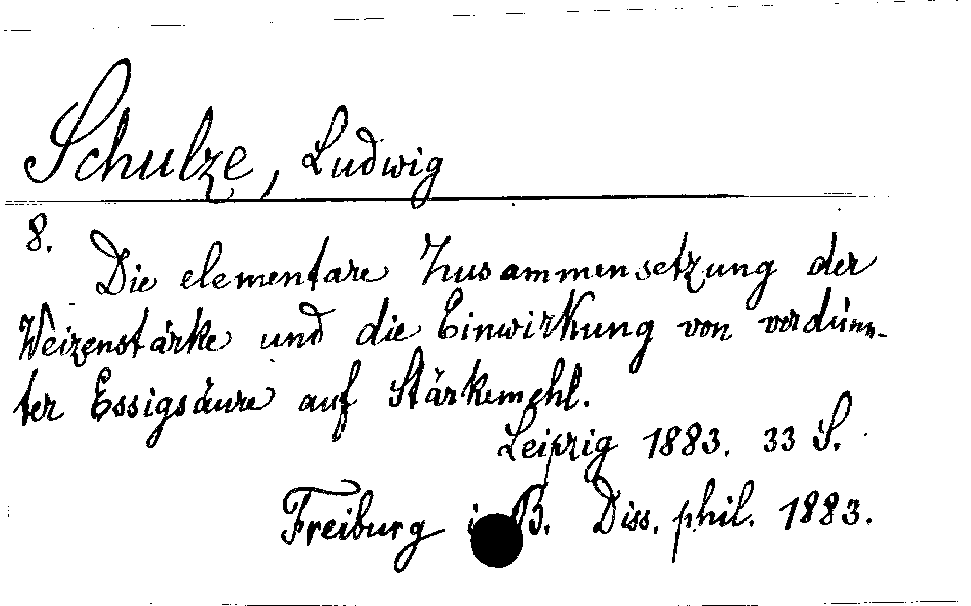 Schulze, Ludwig
8.
Die elementare Zusammensetzung der
Weizenstärke und die Einwirkung von verdünn-
ter Essigsäure auf Stärkemehl.
Leipzig 1883. 33 S.
Freiburg i B. Diss. phil. 1883.